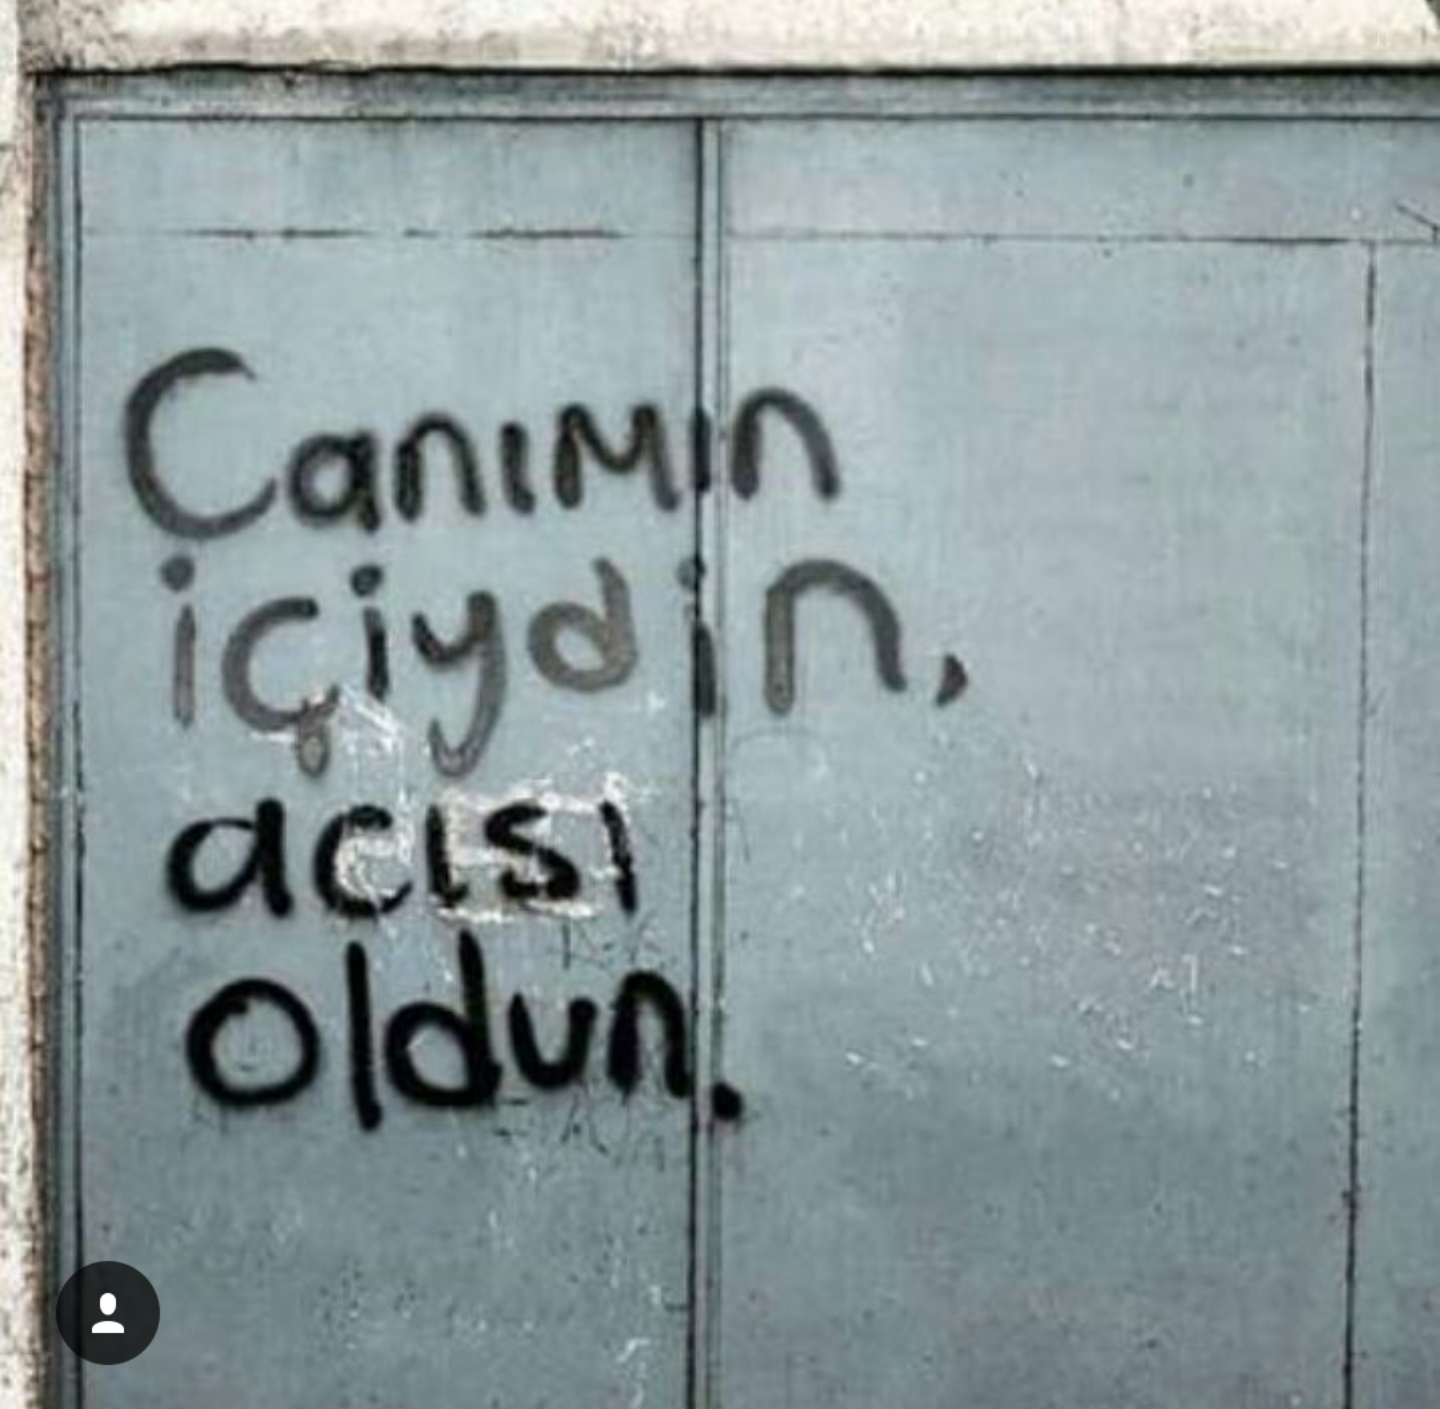 Canımın
içiydin,
acısı
oldun.